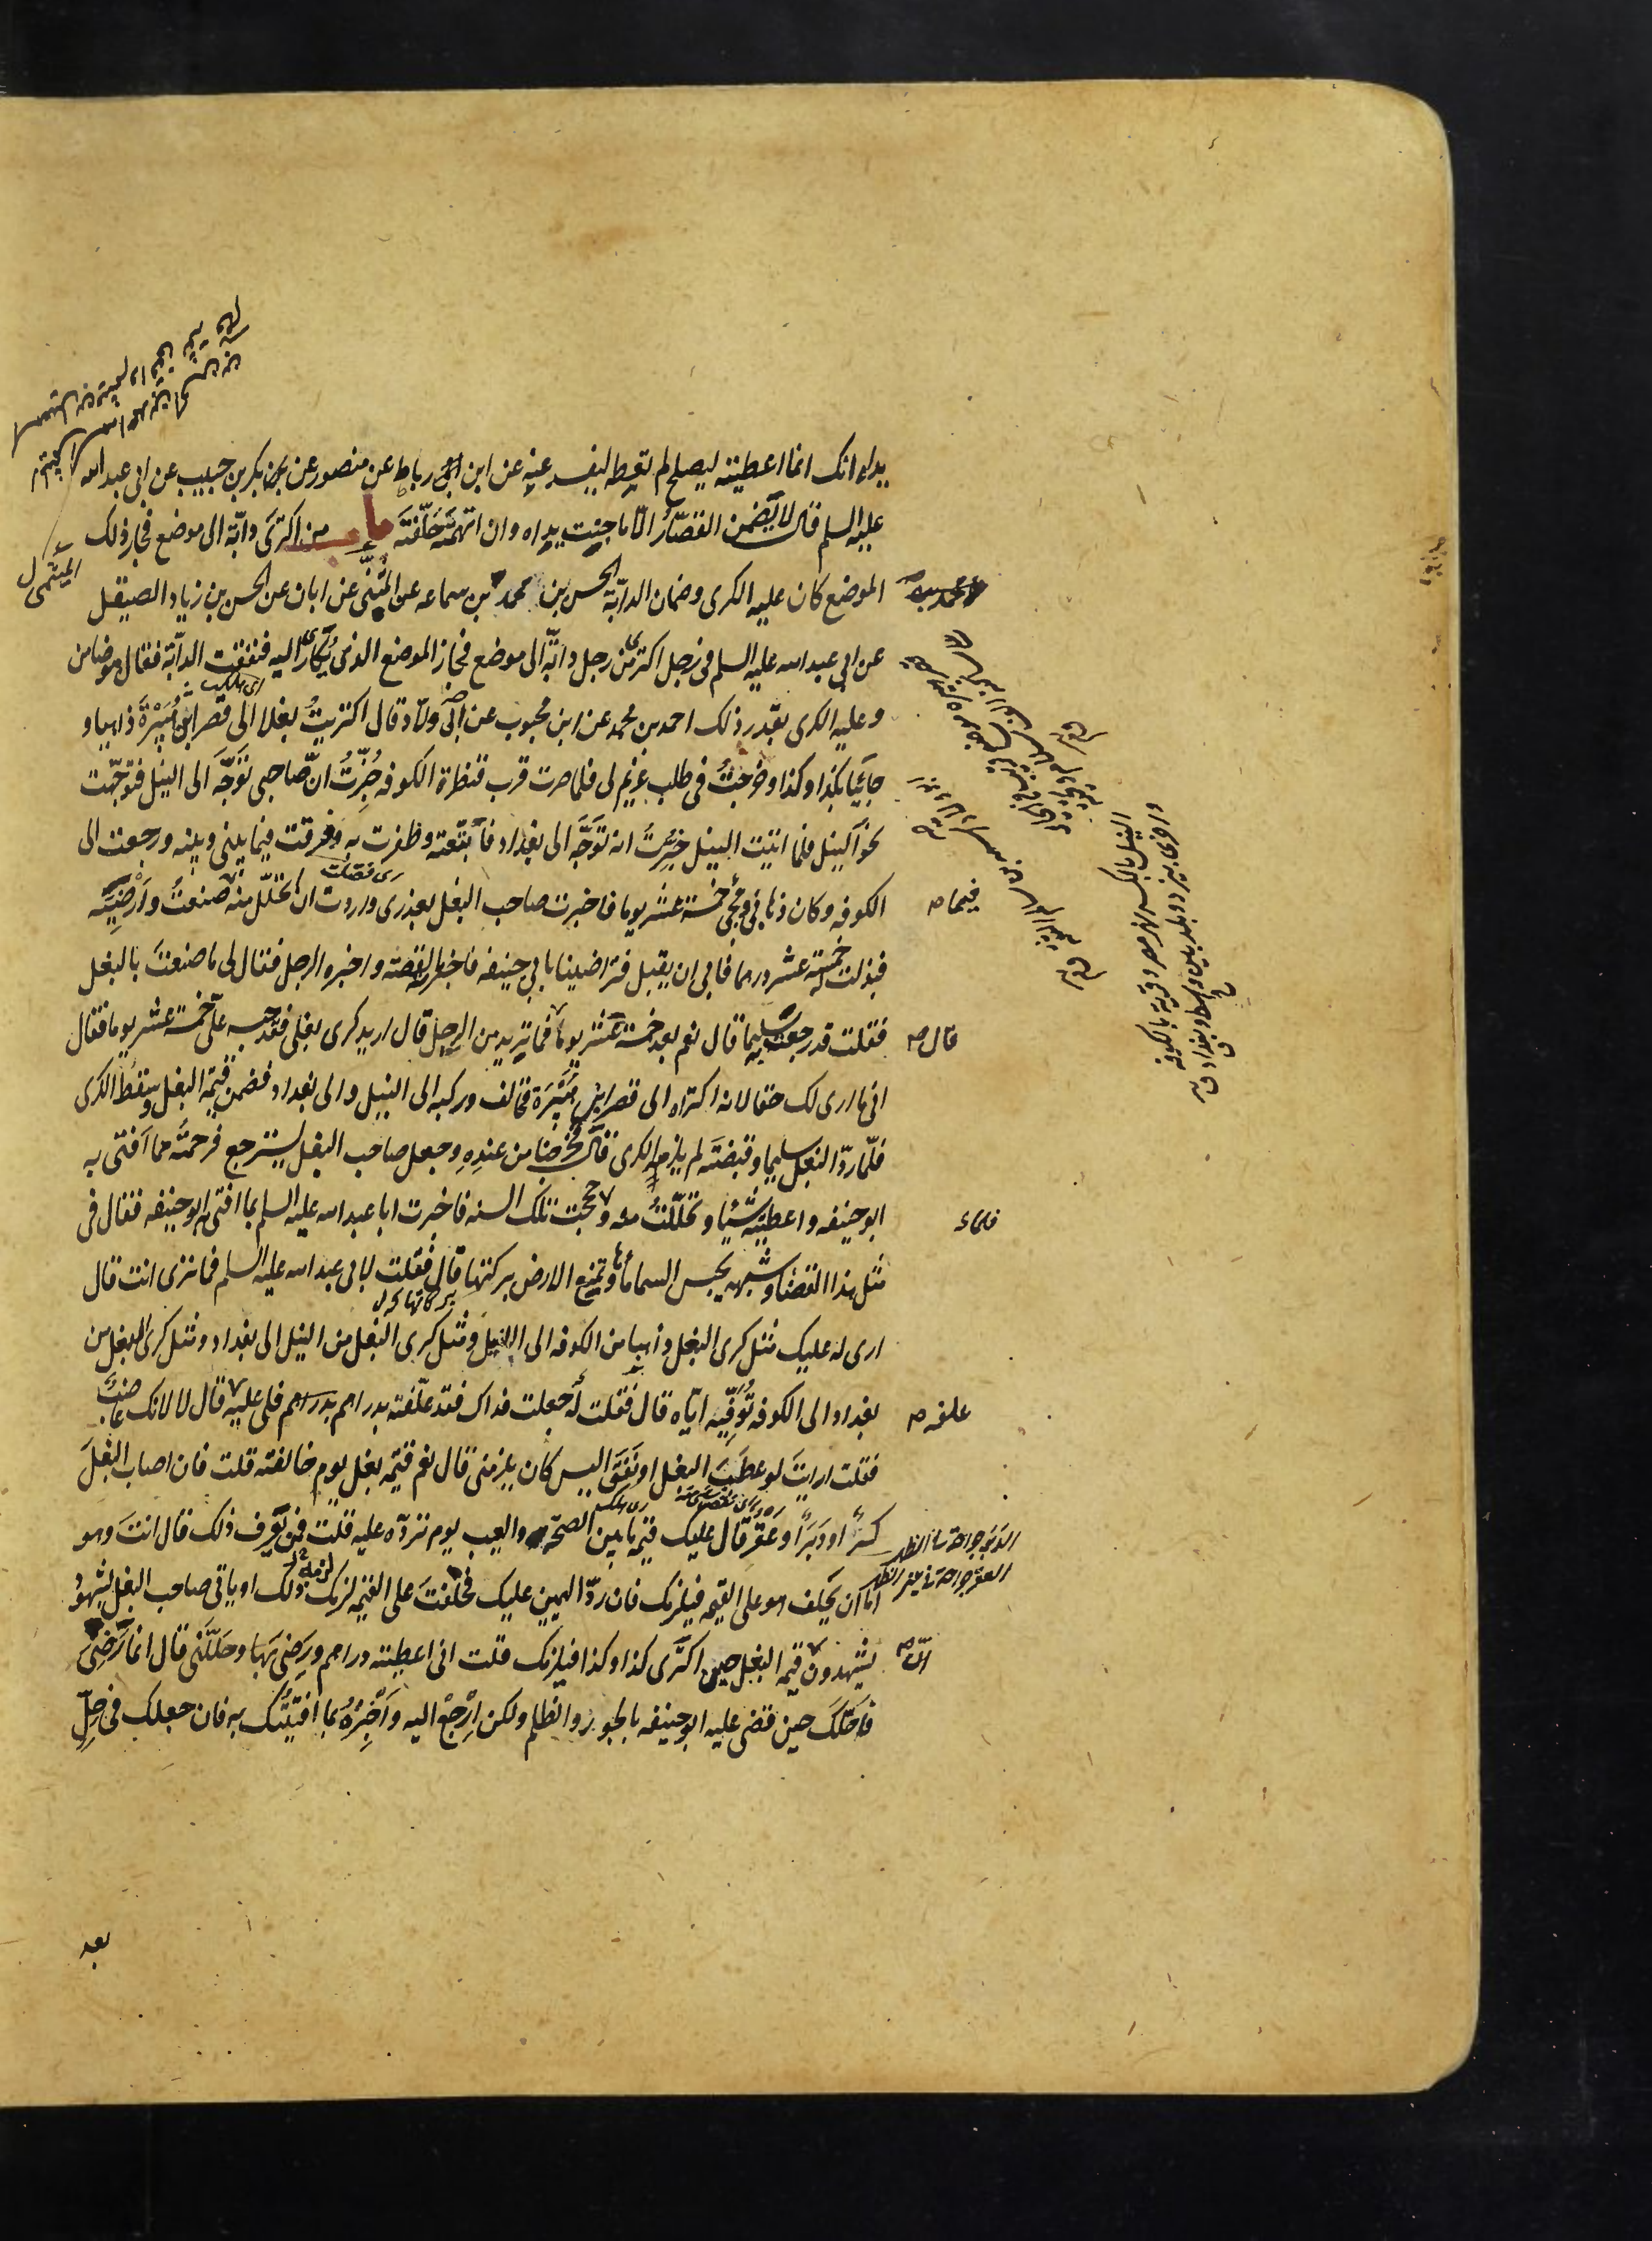 يداه انك انما اعطيته ليصلح لم تعطه ليفسد عنه عن ابن رباط عن منصور عن بكر بن حبيب عن ابى عبد الله
عليه السلم قال لا يضمن القصّار الّا ما جنت يداه وان اتهمته حلّفته باب من اكترى دابّة الى موضع فجاز ذلك
الموضع كان عليه الكرى وضمان الدابّة الحسن بن محمد بن سماعه عن الميثمى عن ابان عن الحسن بن زياد الصيقل
عن ابى عبد الله عليه السلم فى رجل اكترى من رجل دابّة الى موضع فجاز الموضع الذى تكارى اليه فنفقت الدابّة فقال هو ضامن
وعليه الكرى بقدر ذلك احمد بن محمد عن ابن محبوب عن ابى ولّاد قال اكتريتُ بغلا الى قصر ابن هُبَيْرة ذاهبا و
جائيا بكذا وكذا وخرجتُ فى طلب غريم لى فلما صرت قرب قنطرة الكوفه خُبِّرتُ انّ صاحبى توجّه الى النيل فتوجّهت
نحو النيل فلما اتيت النيل خُبِّرتُ انه توجّه الى بغداد فأتبعته وظفرت به وفرقت فيما بينى وبينه ورجعت الى
الكوفه وكان ذهابى ومجئى خمسة عشر يوما فاخبرت صاحب البغل بعذرى واردت ان اتحلّل منه مما صنعتُ وارضيه
فبذلت له خمسة عشر درهما فابى ان يقبل فتراضينا بابى حنيفه فاخبرته القصّة واخبره الرجل فقال لى ما صنعتَ بالبغل
فقلت قد رجعته سليما قال نعم بعد خمسة عشر يوما قال فما تريد من الرجل قال اريد كرى بغلى فقد حبسه علىّ خمسة عشر يوما فقال
انى ما ارى لك حقا لانه اكتراه الى قصر ابن هُبَيْرة فخالف وركبه الى النيل والى بغداد فضمن قيمة البغل وسقط الكرى
فلمّا ردّ البغل سليما وقبضته لم يلزمه الكرى قال فخرجنا من عنده وجعل صاحب البغل يسترجع فرحمته مما افتى به
ابو حنيفه واعطيته شيئا وتحلّلتُ منه وحججت تلك السنه فاخبرت ابا عبد الله عليه السلم بما افتى به ابو حنيفه فقال فى
مثل هذا القضاء وشبهه تحبس السماء ماءها وتمنع الارض بركتها قال فقلت لابى عبد الله عليه السلم فما ترى انت قال
ارى له عليك مثل كرى البغل ذاهبا من الكوفه الى النيل ومثل كرى البغل من النيل الى بغداد ومثل كرى البغل من
بغداد الى الكوفه تُوَفِّيه ايّاه قال فقلت له جعلت فداك فقد علّفته بدراهم فلى عليه علفه قال لا لانك غاصب
فقلت ارايت لو عطب البغل او نفق اليس كان يلزمنى قال نعم قيمة بغل يوم خالفته قلت فان اصاب البغل
كسر او دبر او عقر قال عليك قيمة ما بين الصحّة والعيب يوم تردّه عليه قلت فمن يعرف ذلك قال انت وهو
امّا ان يحلف هو على القيمه فيلزمك فان ردّ اليمين عليك فحلفت على القيمه لزمك ذلك او ياتى صاحب البغل بشهود
يشهدون انّ قيمة البغل حين اكترى كذا وكذا فيلزمك قلت انى اعطيته دراهم ورضى بها وحلّلنى قال انما رضى
فاحلّك حين قضى عليه ابو حنيفه بالجور والظلم ولكن ارجع اليه واخبره بما افتيتك به فان جعلك فى حِلّ
بعد
الميثمى ل
فيما ص
قال ص
علفه ص
انّ ص
اى هلك
بركاتها كل
النيل بالكسر نهر مصر وقرية بالكوفه
واخرى بيزد وبلد بين واسط وبغداد ق